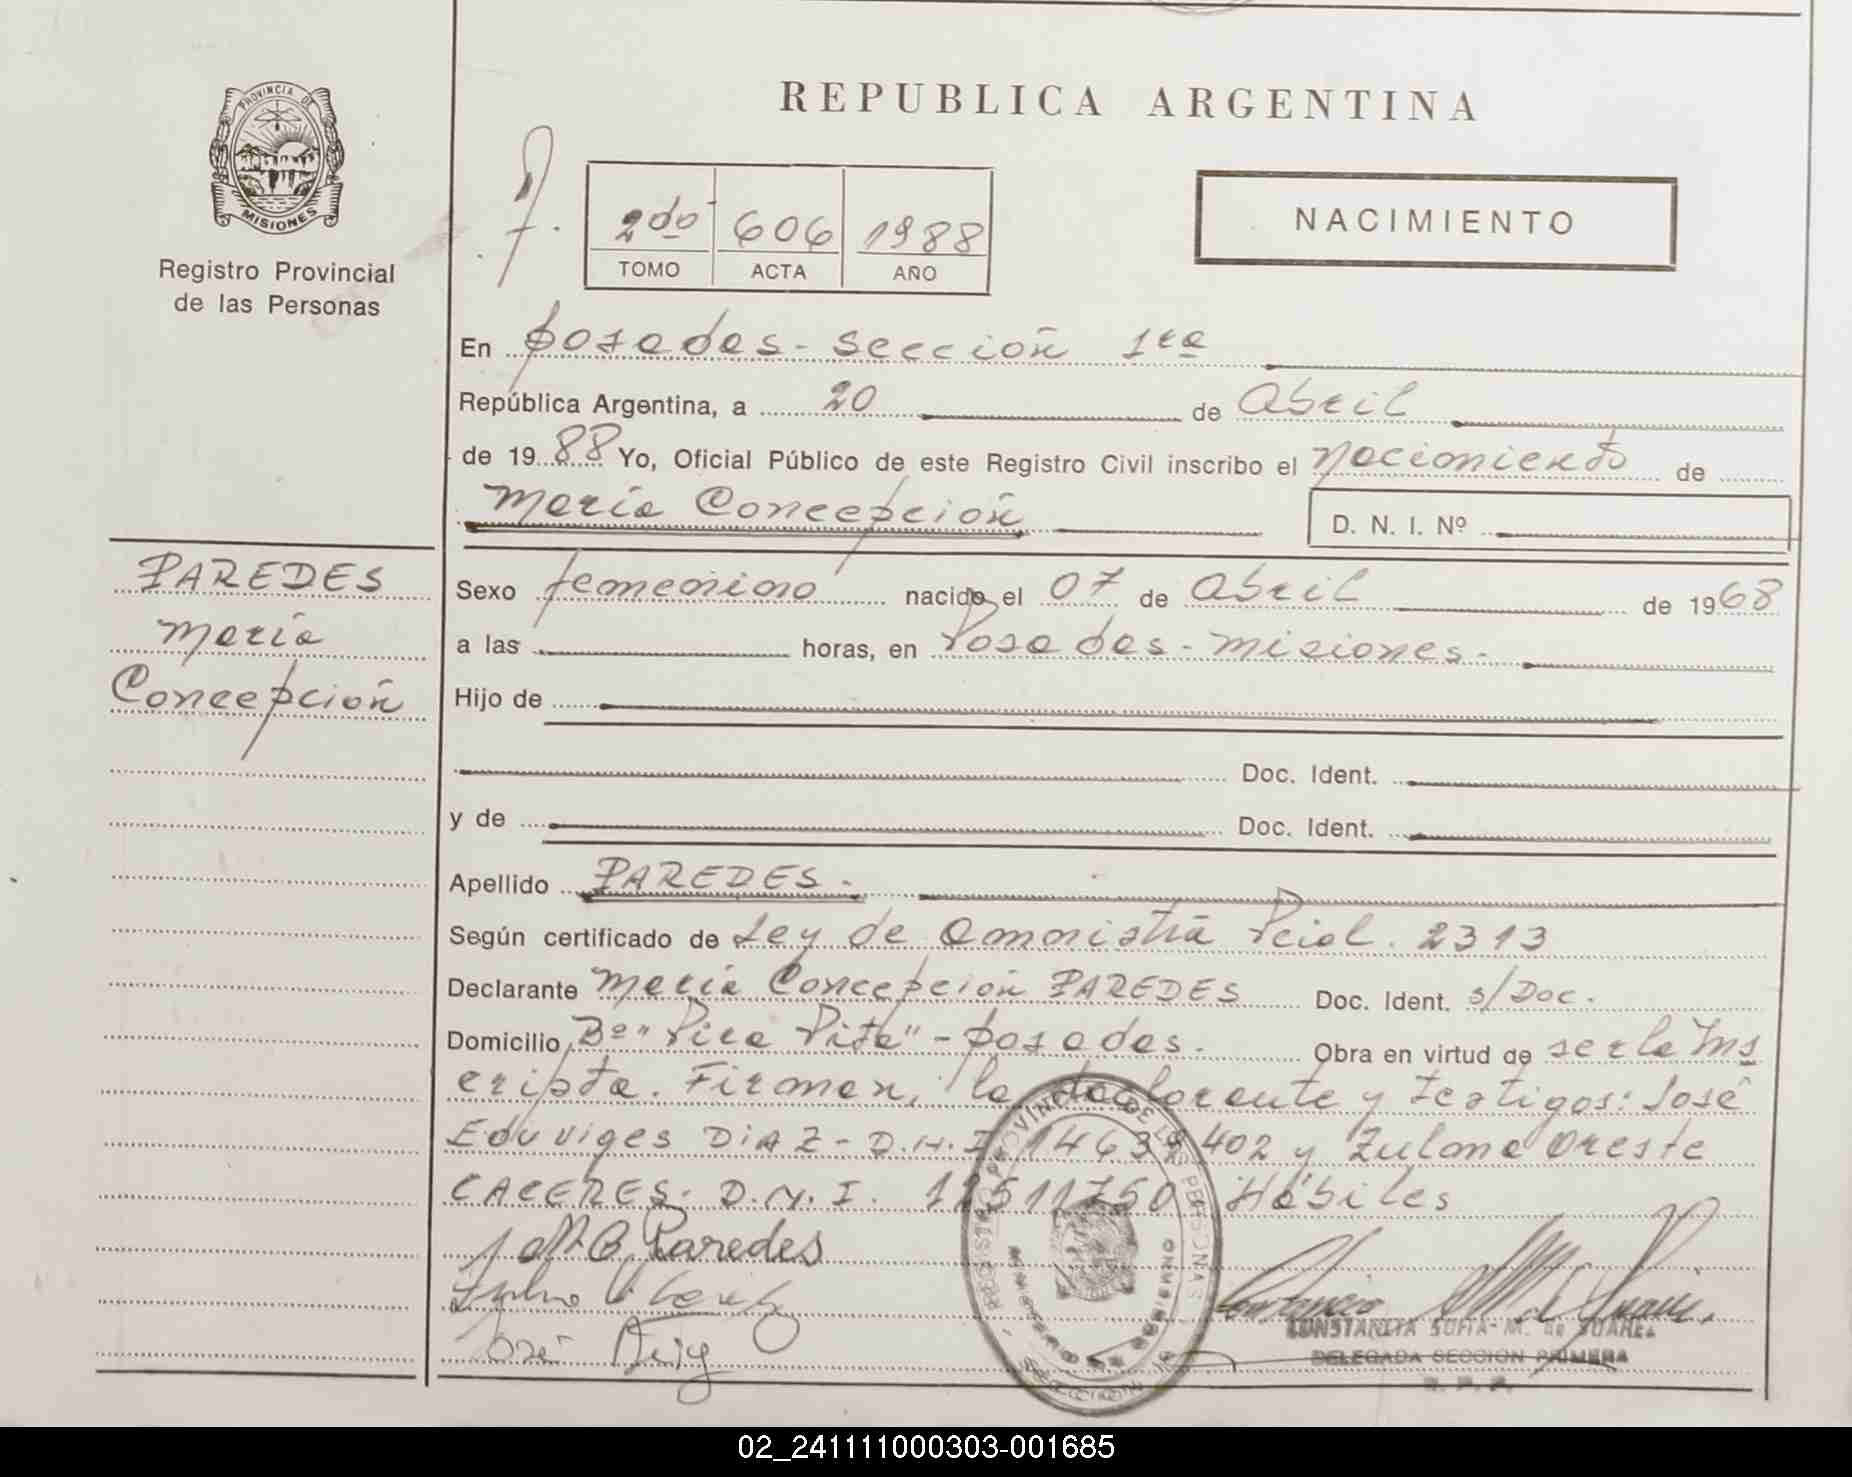 PROVINCIA DE
MISIONES
Registro Provincial
de las Personas
PAREDES
María
Concepción
REPUBLICA ARGENTINA
2do 606 1988
TOMO ACTA AÑO
NACIMIENTO
En Posadas - Sección 1ra
República Argentina, a 20 de Abril
de 1988 Yo, Oficial Público de este Registro Civil inscribo el nacimiento de
María Concepción D. N. I. Nº
Sexo femenino nacido el 07 de Abril de 1968
a las horas, en Posadas - Misiones -
Hijo de
Doc. Ident.
y de Doc. Ident.
Apellido PAREDES -
Según certificado de Ley de Amnistía Pcial. 2313
Declarante María Concepción PAREDES Doc. Ident. s/Doc.
Domicilio Bº "Pira Pita" - Posadas. Obra en virtud de serla Ins
cripta. Firman, la declarante y testigos: José
Eduviges DIAZ - D.N.I. 402 y Zulma Oreste
CACERES - D.N.I. 12511750 Hábiles
M.C. Paredes
José
CONSTANCIA SOFIA M. de SUAREZ
DELEGADA SECCION PRIMERA
R. P. P.
02_241111000303-001685